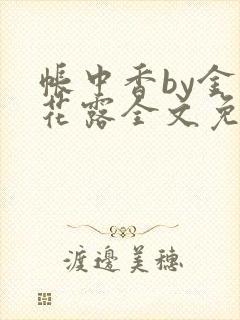 帐中香by金
花露全文免
渡邊美穗